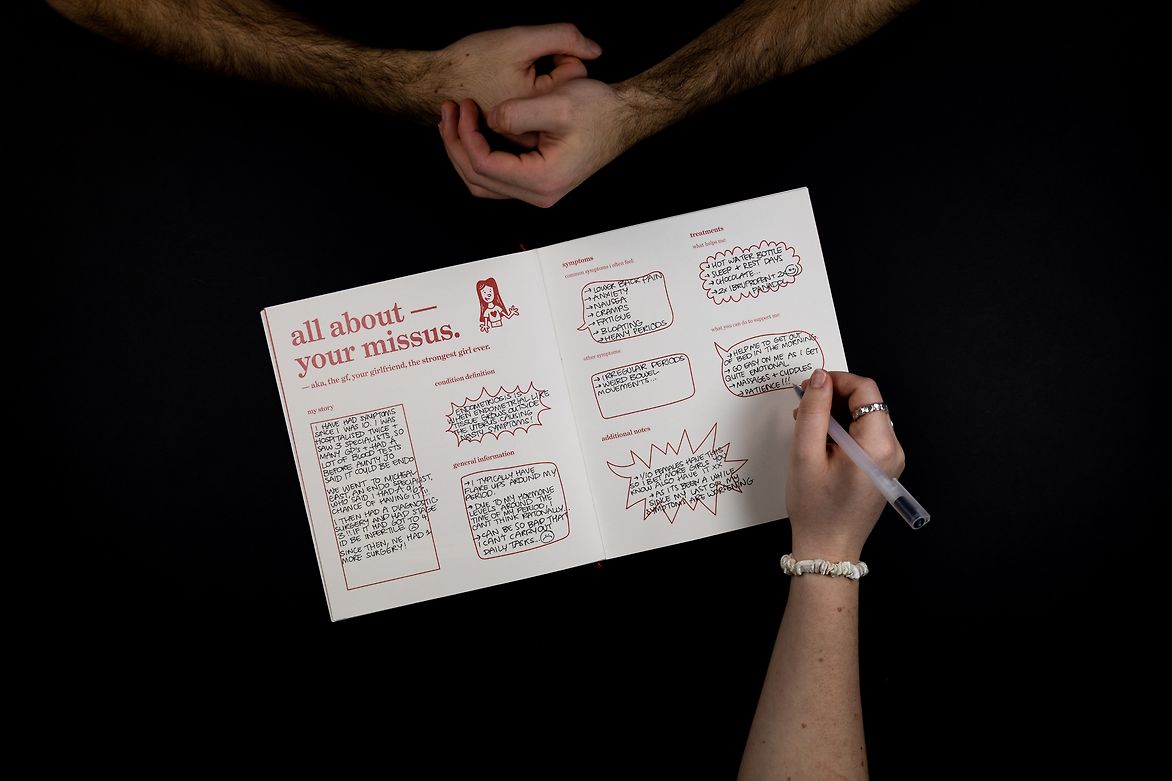 all about —
your missus.
— aka. the gf, your girlfriend, the strongest girl ever.
my story
I HAVE HAD SYMPTOMS
SINCE I WAS 10. I WAS
HOSPITALISED TWICE +
SAW 3 SPECIALISTS, SO
MANY GP'S + HAD A
LOT OF BLOOD TESTS
BEFORE AUNTY JO
SAID IT COULD BE ENDO
WE WENT TO MICHEAL
EAST, AN ENDO SPECIALIST,
WHO SAID I HAD A 90%
CHANCE OF HAVING IT.
I THEN HAD A DIAGNOSTIC
SURGERY AND HAD STAGE
3!! IF IT HAD GOT TO 4
I'D BE INFERTILE
SINCE THEN, I'VE HAD 1
MORE SURGERY!
condition definition
ENDOMETRIOSIS IS
WHEN ENDOMETRIAL LIKE
TISSUE GROWS OUTSIDE
THE UTERUS CAUSING
NASTY SYMPTOMS!
general information
→ I TYPICALLY HAVE
FLARE UPS AROUND MY
PERIOD.
→ DUE TO MY HORMONE
LEVELS AROUND THE
TIME OF MY PERIOD, I
CAN'T THINK RATIONALLY...
→ CAN BE SO BAD THAT
I CAN'T CARRYOUT
DAILY TASKS...
symptoms
common symptoms i often feel
→ LOWER BACK PAIN
→ ANXIETY
→ NAUSEA
→ CRAMPS
→ FATIGUE
→ BLOATING
→ HEAVY PERIODS
other symptoms
→ IRREGULAR PERIODS
→ WEIRD BOWEL
MOVEMENTS...
additional notes
→ 1/10 FEMALES HAVE THIS
SO I BET MORE GIRLS YOU
KNOW ALSO HAVE IT XX
→ AS IT'S BEEN A WHILE
SINCE MY LAST OP, MY
SYMPTOMS ARE WORSENING
treatments
what helps me
→ HOT WATER BOTTLE
→ SLEEP + REST DAYS
→ CHOCOLATE...
→ 2X IBRUPROFEN + 2X
PANADOL
what you can do to support me
→ HELP ME TO GET OUT
OF BED IN THE MORNING
→ GO EASY ON ME AS I GET
QUITE EMOTIONAL
→ MASSAGES + CUDDLES
→ PATIENCE!!!